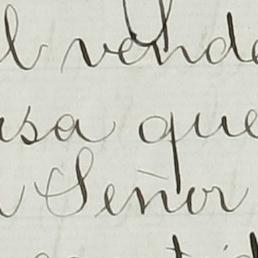 l vende
asa que
Señor